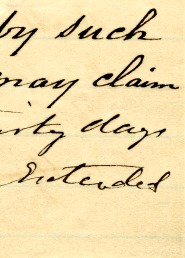 by such
may claim
days
Extended